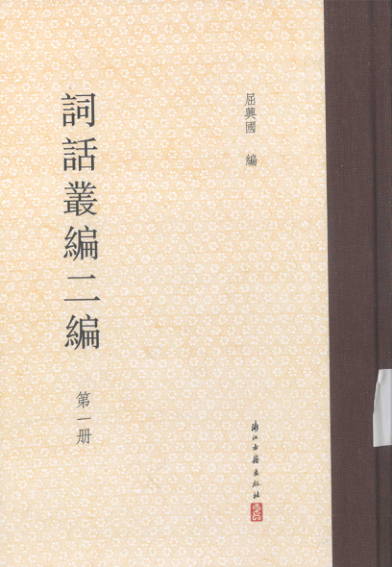 屈興國 編
詞話叢編二編
第一册
浙江古籍出版社